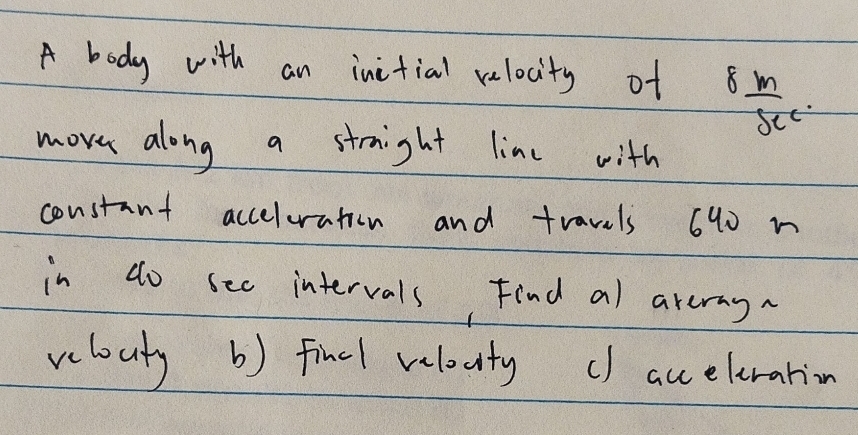 A body with an initial velocity of 8 m/sec.
moves along a straight line with
constant acceleration and travels 640 m
in 40 sec intervals, Find a) average
velocity b) Final velocity c) acceleration